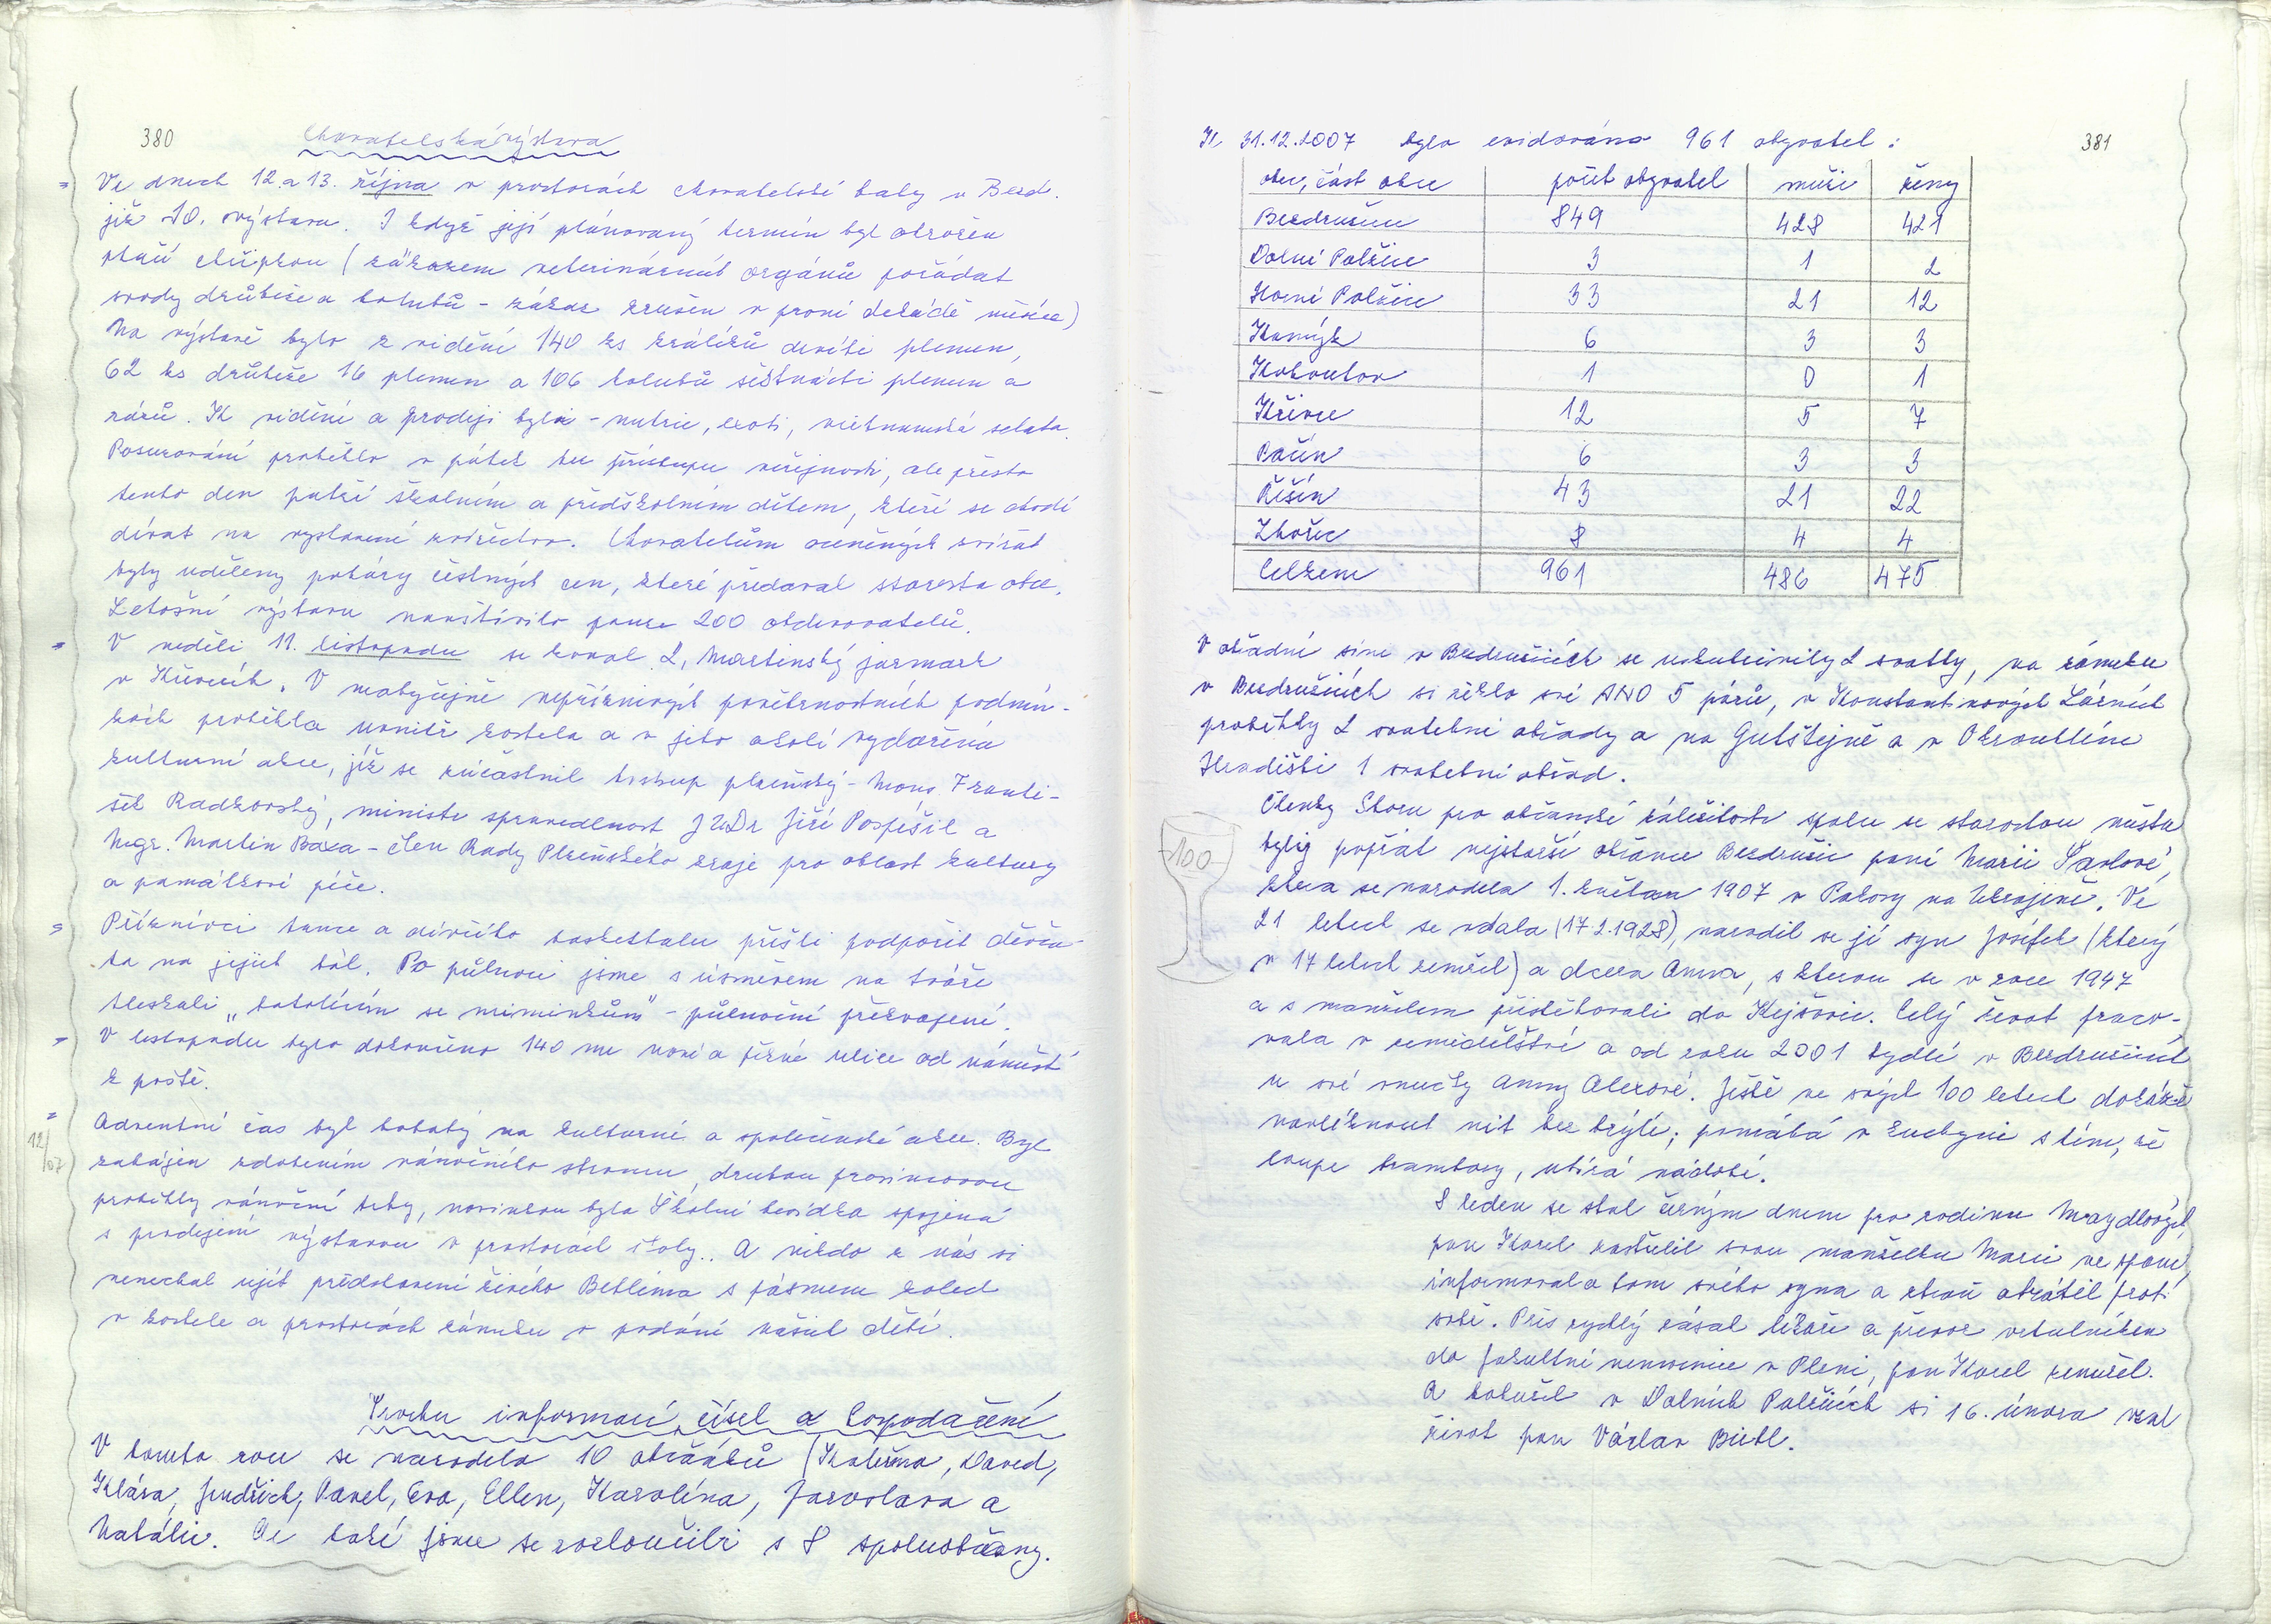 380
Chovatelská výstava
Ve dnech 12. a 13. října v prostorách chovatelské haly v Bezd.
již 10. výstava. I když její plánovaný termín byl ohrožen
ptačí chřipkou (zákazem veterinárních orgánů pořádat
svody drůbeže a holubů - zákaz zrušen v první dekádě měsíce)
Na výstavě bylo k vidění 140 ks králíků devíti plemen,
62 ks drůbeže 16 plemen a 106 holubů šestnácti plemen a
rázů. K vidění a prodeji byla - nutrie, exoti, vietnamská selata.
Posuzování proběhlo v pátek bez přístupu veřejnosti, ale přesto
tento den patří školním a předškolním dětem, kteří se chodí
dívat na vystavené zvířectvo. Chovatelům oceněných zvířat
byly uděleny poháry čestných cen, které předával starosta obce.
Letošní výstavu navštívilo pouze 200 obdivovatelů.
V neděli 11. listopadu se konal 2. Martinský jarmark
v Křivcích. V neobyčejně nepříznivých povětrnostních podmín-
kách proběhla uvnitř kostela a v jeho okolí vydařená
kulturní akce, jíž se zúčastnil biskup plzeňský - Mons. Franti-
šek Radkovský, ministr spravedlnost JUDr Jiří Pospíšil a
Mgr. Martin Baxa - člen Rady Plzeňského kraje pro oblast kultury
a památkové péče.
Příznivci tance a dívčího basketbalu přišli podpořit děvča-
ta na jejich bál. Po půlnoci jsme s úsměvem na tváři
tleskali „batolícím se miminkům" - půlnoční překvapení.
V listopadu bylo dokončeno 140 m nové a pěkné ulice od náměstí
k poště.
12/07
Adventní čas byl bohatý na kulturní a společenské akce. Byl
zahájen zdobením vánočního stromu, druhou prosincovou
proběhly vánoční trhy, novinkou byla Školní besídka spojená
s prodejní výstavou v prostorách školy. A nikdo z nás si
nenechal ujít představení živého Betléma s pásmem koled
v kostele a prostorách zámku v podání našich dětí.
Trochu informací, čísel a hospodaření
V tomto roce se narodilo 10 občánků (Kateřina, David,
Klára, Jindřich, Pavel, Eva, Ellen, Karolína, Jaroslava a
Natálie. Ale také jsme se rozloučili s 8 spoluobčany.
381
K 31.12.2007 bylo evidováno 961 obyvatel:
obec, část obce počet obyvatel muži ženy
Bezdružice 849 428 421
Dolní Polžice 3 1 2
Horní Polžice 33 21 12
Kamýk 6 3 3
Kohoutov 1 0 1
Křivce 12 5 7
Pačín 6 3 3
Řešín 43 21 22
Zhořec 8 4 4
Celkem 961 486 475
V obřadní síni v Bezdružicích se uskutečnily 2 svatby, na zámku
v Bezdružicích si řeklo své ANO 5 párů, v Konstantinových Lázních
proběhly 2 svatební obřady a na Gutštejně a v Okrouhlém
Hradišti 1 svatební obřad.
Členky Sboru pro občanské záležitosti spolu se starostou města
100
byly popřát nejstarší občance Bezdružic paní Marii Šavlové,
která se narodila 1. května 1907 v Palovy na Ukrajině. Ve
21 letech se vdala (17.2.1928), narodil se jí syn Josífek (který
v 17 letech zemřel) a dcera Anna, s kterou se v roce 1947
a s manželem přistěhovali do Kejšovic. Celý život praco-
vala v zemědělství a od roku 2001 bydlí v Bezdružicích
u své vnučky Anny Alexové. Ještě ve svých 100 letech dokáže
navléknout nit bez brýlí; pomáhá v kuchyni s tím, že
loupe brambory, utírá nádobí.
8 leden se stal černým dnem pro rodinu Mraydlových,
pan Karel zastřelil svou manželku Marii ve spaní,
informoval o tom svého syna a zbraň obrátil proti
sobě. Přes rychlý zásah lékaře a převoz vrtulníkem
do fakultní nemocnice v Plzni, pan Karel zemřel.
A bohužel v Dolních Polžicích si 16. února vzal
život pan Václav Biehl.